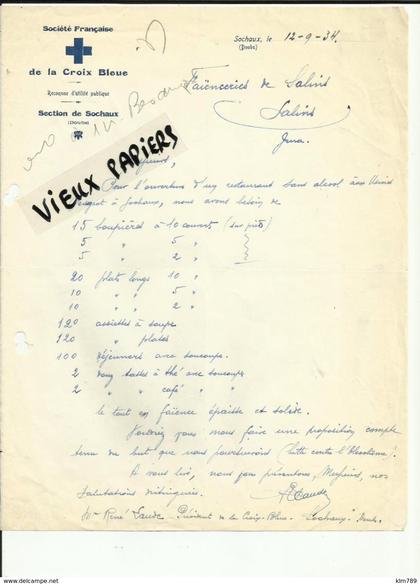 Société Française
de la Croix Bleue
Reconnue d'utilité publique
Section de Sochaux
(Doubs)
Sochaux, le 12-9-34.
(Doubs)
Faïenceries de Salins
Salins
Jura.
VIEUX PAPIERS
Messieurs,
Pour l'ouverture d'un restaurant sans alcool aux Usines
Peugeot à Sochaux, nous avons besoin de
15 soupières à 10 couverts (sur pieds)
5 " 5 "
5 " 2 "
20 plats longs 10 "
10 " " 5 "
10 " " 2 "
120 assiettes à soupe
120 " plates
100 déjeuners avec soucoupes.
2 douz tasses à thé avec soucoupes
2 " " café " "
le tout en faïence épaisse et solide.
Voudriez vous nous faire une proposition compte
tenu du but que nous poursuivons (lutte contre l'alcoolisme).
A vous lire, nous vous présentons, Messieurs, nos
salutations distinguées.
Mr René Président de la Croix-Bleue Sochaux Doubs.
kim789
www.delcampe.net